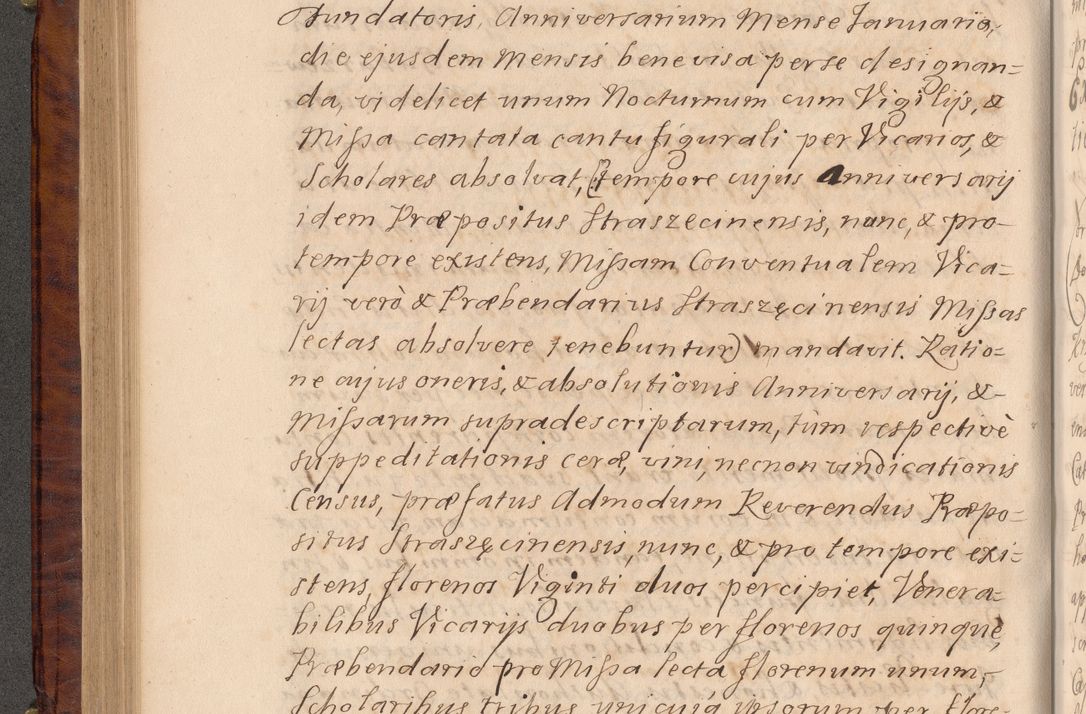 Fundatoris, Anniversarium Mense Januario,
die ejusdem Mensis benevisa per se designan=
da, videlicet unum Nocturnum cum Vigilijs, &
Missa cantata cantu figurali per Vicarios, &
Scholares absolvat, (tempore cujus Anniversarij
idem Præpositus Straszecinensis, nunc, & pro
tempore existens, Missam Conventualem Vica=
rij verò & Præbendarius Straszęcinensis Missas
lectas absolvere tenebuntur) mandavit. Ratio=
ne cujus oneris, & absolutionis Anniversarij, &
Missarum supradescriptarum, tùm respectivè
suppeditationis ceræ, vini, necnon vindicationis
Census, præfatus Admodum Reverendus Præpo=
situs Straszęcinensis, nunc, & pro tempore exi=
stens, florenos Viginti duos percipiet, Venera=
bilibus Vicarijs duobus per florenos quinque,
Præbendario pro Missa lecta florenum unum,
Scholaribus tribus unicuiq ipsorum per flore=